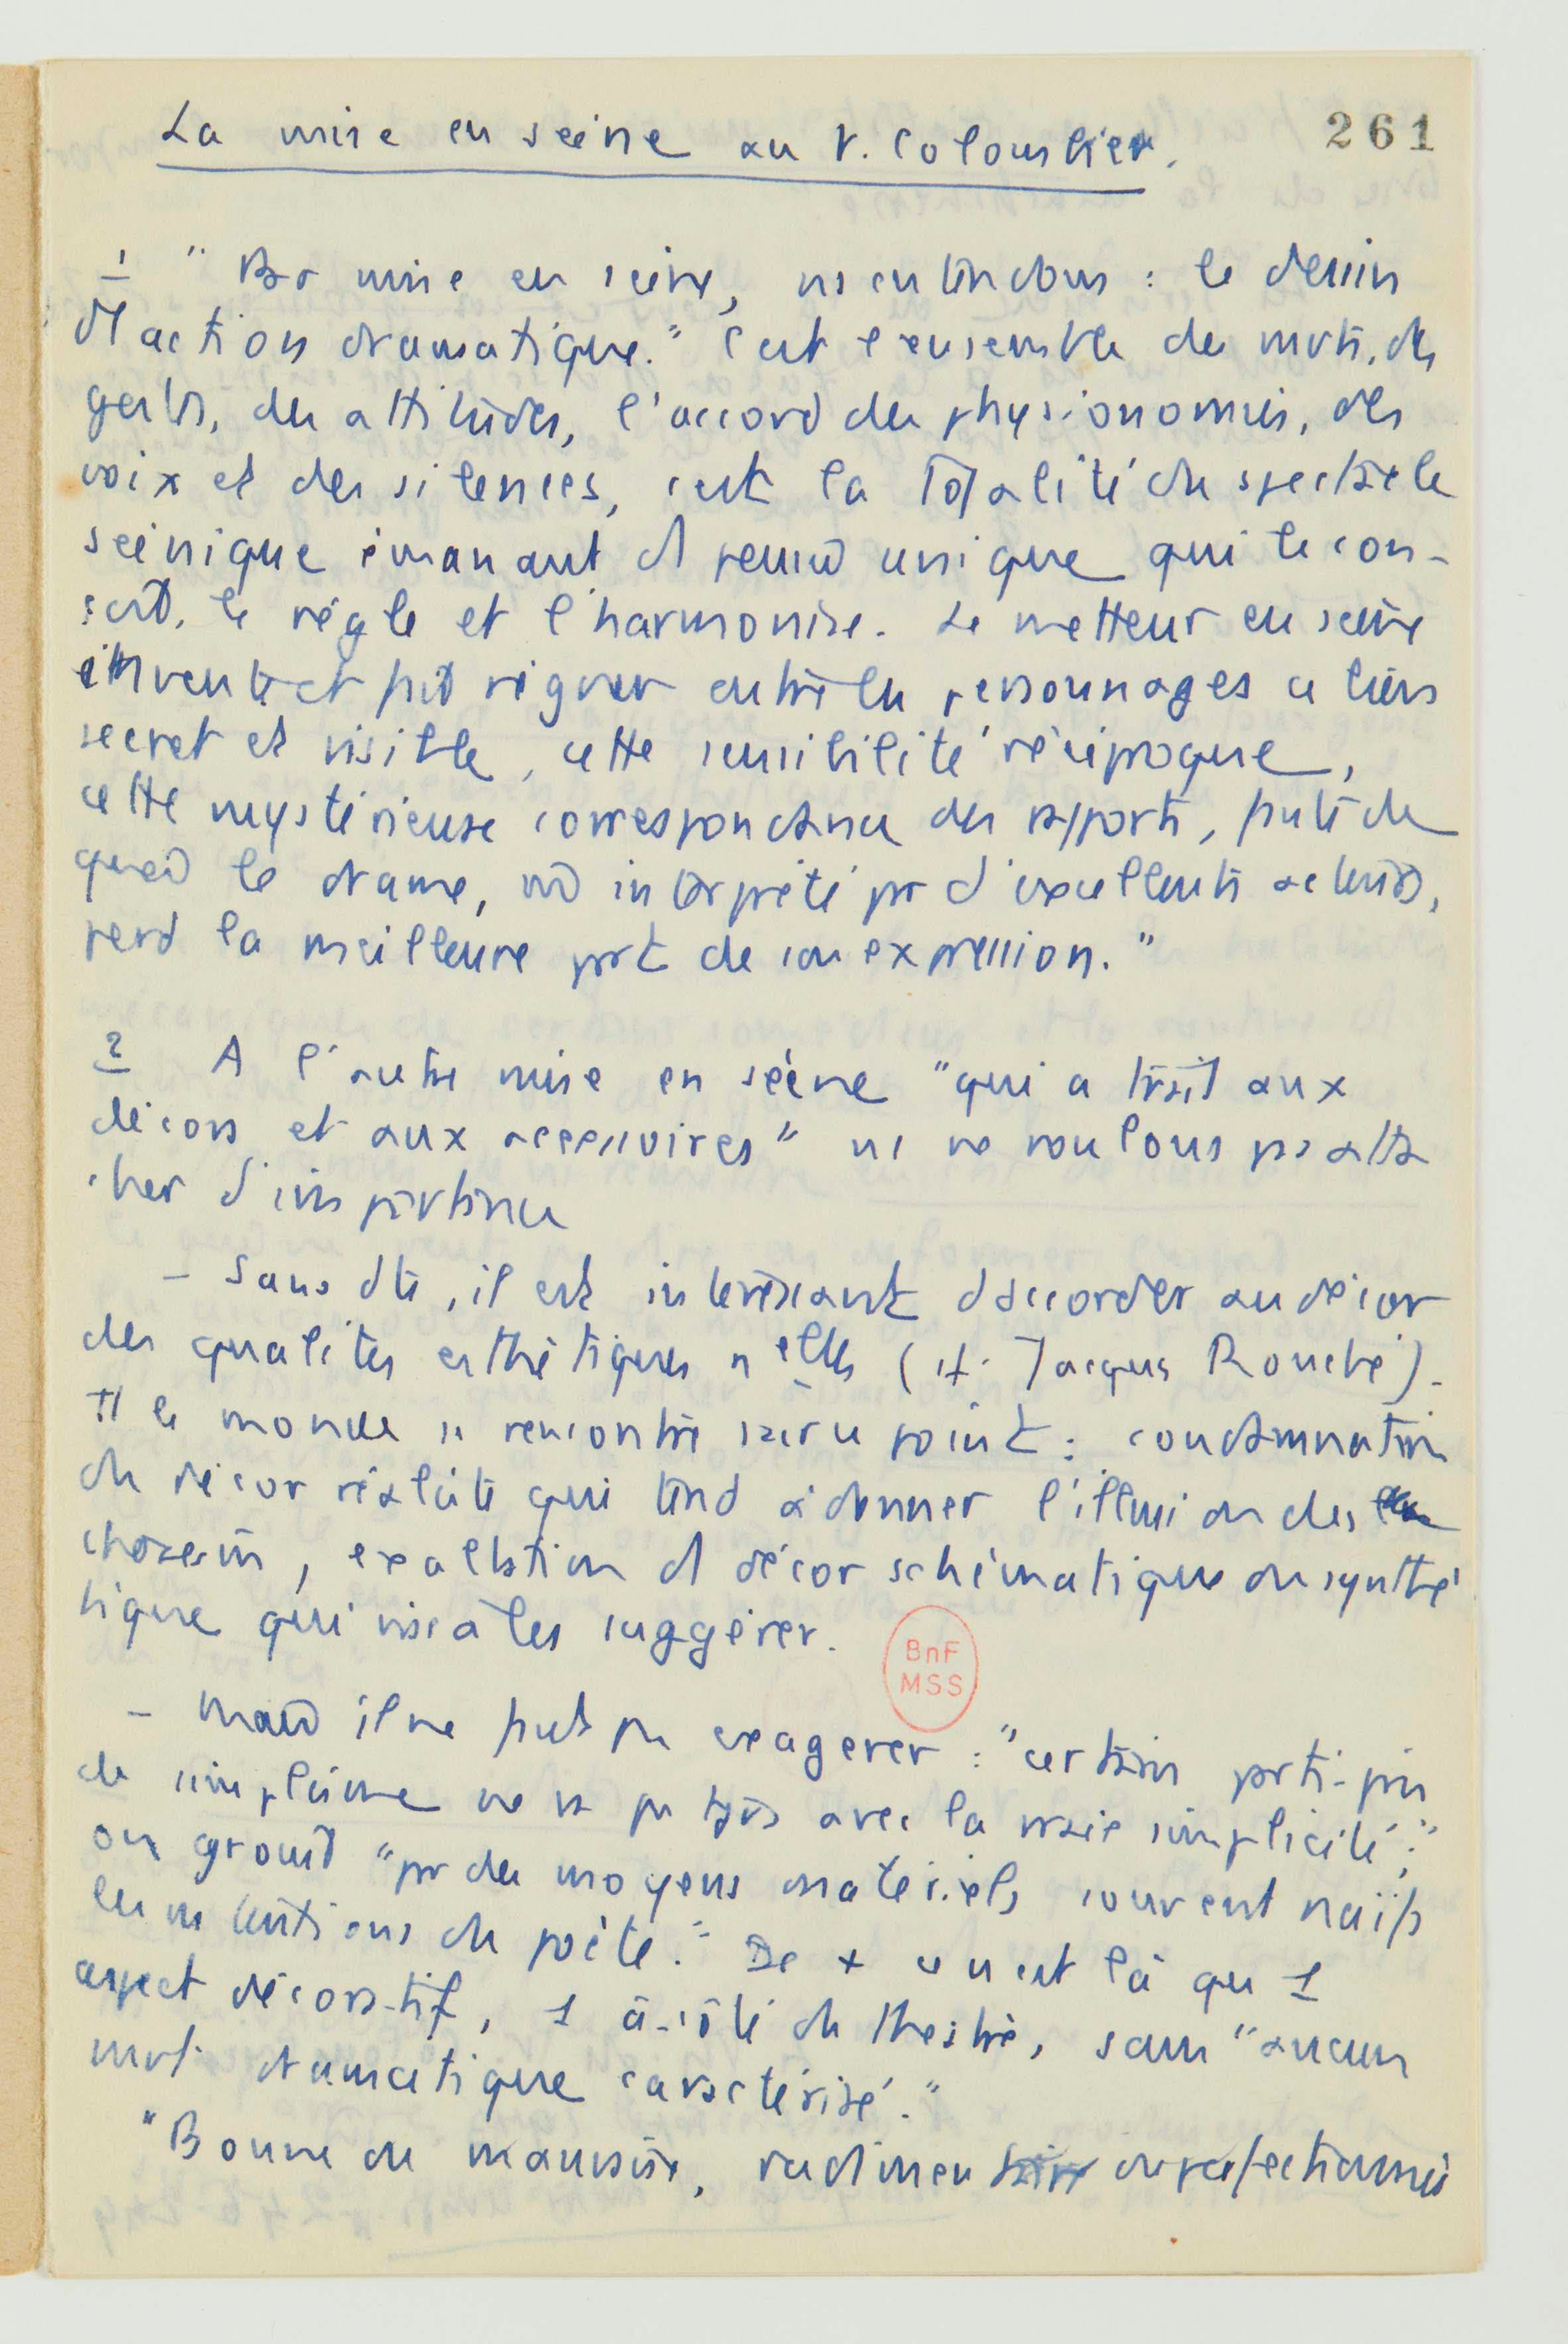 La mise en scène au V. Colombier.
261
1 "Par mise en scène, ns entendons : le dessin
d'1 action dramatique." C'est l'ensemble des mvts, des
gestes, des attitudes, l'accord des physionomies, des
voix et des silences, c'est la totalité du spectacle
scénique émanant d'1 pensée unique qui le con-
çoit, le règle et l'harmonise. Le metteur en scène
invente et fait régner entre les personnages ce lien
secret et visible, cette sensibilité réciproque,
cette mystérieuse correspondance des rapports, faute de
quoi le drame, interprété par d'excellents acteurs,
perd la meilleure part de son expression."
2 A l'autre mise en scène "qui a trait aux
décors et aux accessoires" ns ne voulons pas atta
cher d'importance
- Sans dte, il est intéressant d'accorder au décor
des qualités esthétiques nelles (cf. Jacques Rouché).
Tt le monde se rencontre sur ce point : condamnation
du décor réaliste qui tend à donner l'illusion des
choses m̂, exaltation d'1 décor schématique ou synthé
tique qui vise à les suggérer.
BnF
MSS
- Mais il ne faut pas exagérer : "certain parti-pris
de simplisme ne va pas tjrs avec la vraie simplicité";
on grossit "par des moyens matériels souvent naïfs
les intentions du poète." De + ce n'est là qu'1
aspect décoratif, 1 à-côté du théâtre, sans "aucun
mvt dramatique caractérisé."
"Bonne ou mauvaise, rudimentaire ou perfectionnée